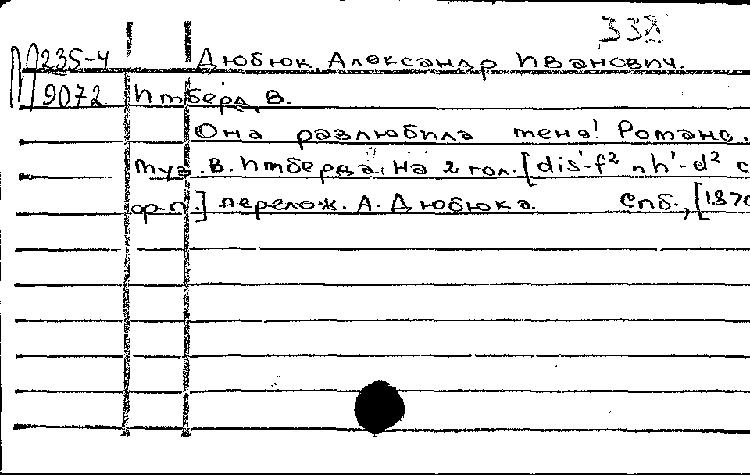 338
П 235-4 Дюбюк, Александр Иванович.
9072 Имберг, В.
Она разлюбила меня! Романс.
Муз. В. Имберга. На 2 гол. [dis'-f² и h'-d² с
ф-п.] перелож. А. Дюбюка. Спб., [187